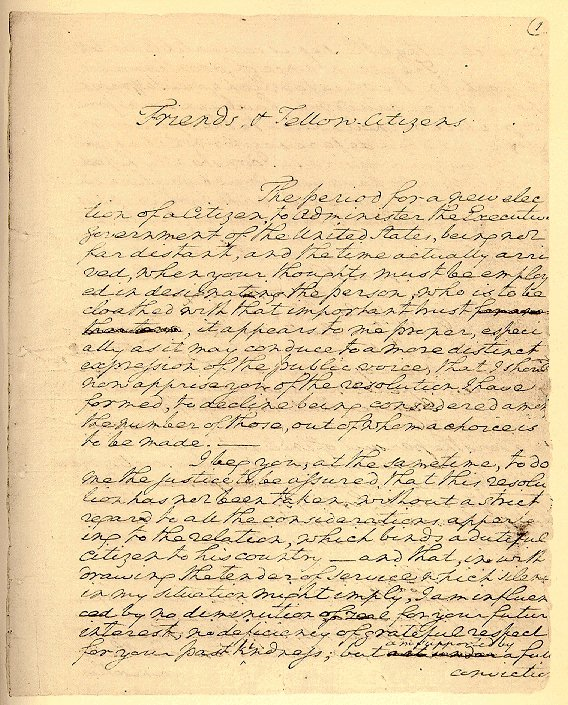 (1
Friends, & Fellow-Citizens
The period for a new elec
tion of a Citizen, to administer the Executive
government of the United States, being not
far distant, and the time actually arri
ved, when your thoughts must be employ
ed in designating the person, who is to be
cloathed with that important trust
, it appears to me proper, especi
ally as it may conduce to a more distinct
expression of the public voice, that I should
now apprise you of the resolution I have
formed, to decline being considered among
the number of those, out of whom a choice is
to be made. —
I beg you, at the same time, to do
me the justice to be assured, that this resolu
tion has not been taken, without a strict
regard to all the considerations apper
ing to the relation, which binds a dutiful
citizen to his country — and that, in with
drawing the tender of service which silence
in my situation might imply, I am influen
ced by no diminution of zeal for your future
interest, no deficiency of grateful respect
for your past kindness; but am supported by a full
conviction